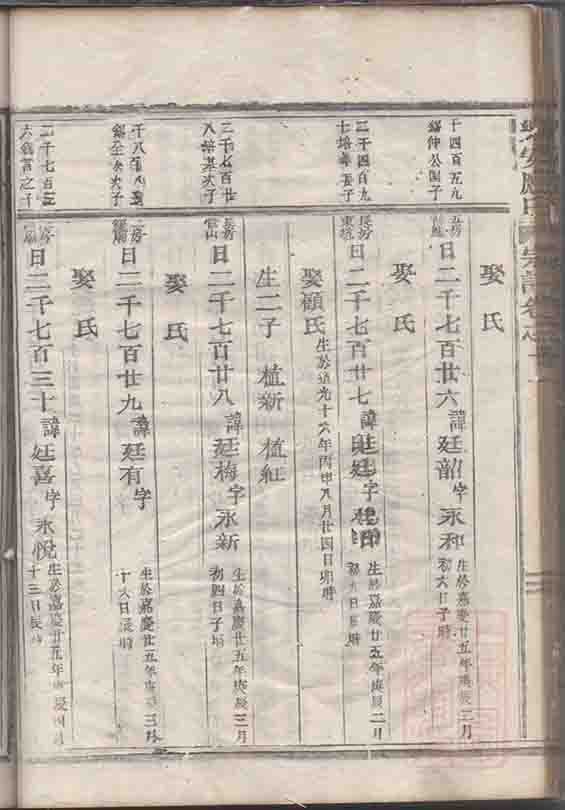 宗譜卷之
千四百五九
錫仲公圓子
娶氏
日二千七百廿六諱廷韶字永和
生於嘉慶廿五年庚辰二月
初六日子時
二千四百九
七培
長房
東坑
娶氏
日二千七百廿七諱廷字
生於嘉慶廿五年庚辰二月
初六日辰時
娶顧氏
生於道光十六年丙申八月廿四日卯時
生二子 植新 植紅
二千七百廿
八培其次子
長房
日二千七百廿八諱廷梅字永新
生於嘉慶廿五年庚辰三月
初四日子時
娶氏
千八百
錫全次子
日二千七百廿九諱廷有字
生於嘉慶廿五年庚辰三月
十六日辰時
娶氏
二千七百三
日二千七百三十諱廷喜字永悅
生於嘉慶廿五年庚辰四月
十三日辰時